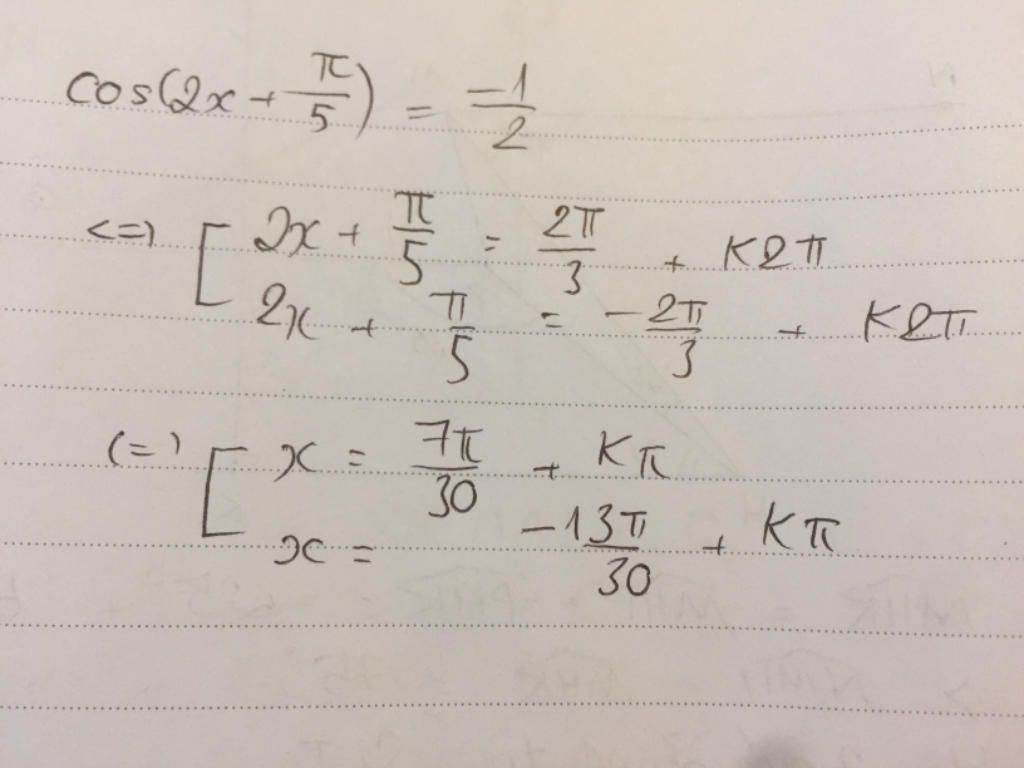 cos(2x + π/5) = -1/2
<=> [ 2x + π/5 = 2π/3 + K2π
2x + π/5 = -2π/3 + K2π
(=) [ x = 7π/30 + Kπ
x = -13π/30 + Kπ